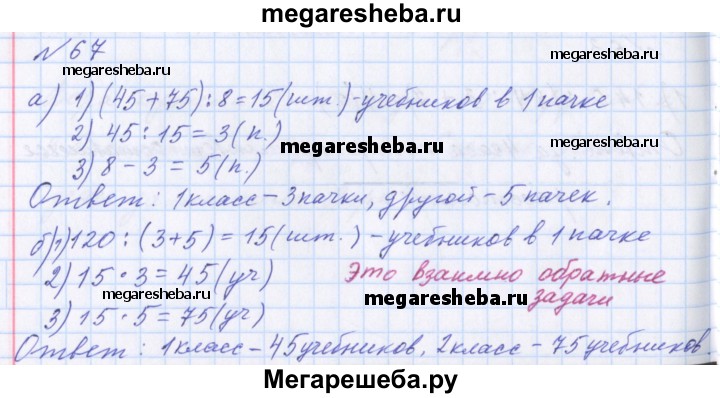 megaresheba.ru
№ 67
megaresheba.ru
megaresheba.ru
а) 1) (45+75):8=15(шт.)-учебников в 1 пачке
2) 45:15=3(п.)
megaresheba.ru
3) 8-3=5(п.)
Ответ: 1класс-3пачки, другой-5 пачек.
б) 1) 120:(3+5)=15(шт.)-учебников в 1 пачке
2) 15·3=45(уч) Это взаимно обратные
megaresheba.ru
megaresheba.ru задачи
3) 15·5=75(уч)
Ответ: 1класс-45учебников, 2класс-75учебников.
Мегарешеба.ру